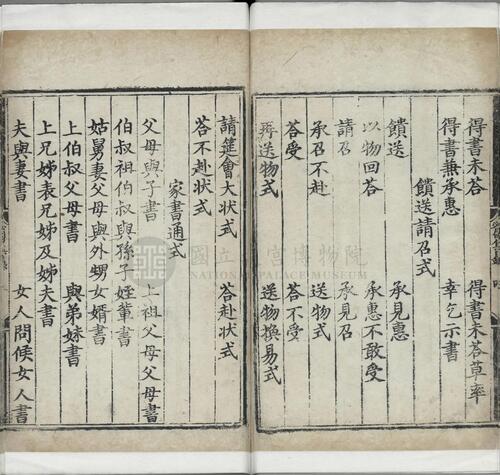 得書未荅 得書未荅草率
得書兼承惠 幸乞示書
饋送請召式
饋送 承見惠
以物回荅 承惠不敢受
請召 承見召
承召不赴 送物式
荅受 荅不受
再送物式 送物換易式
請筵會大狀式 荅赴狀式
荅不赴狀式
家書通式
父母與子書 上祖父母父母書
伯叔祖伯叔與孫子姪輩書
姑舅妻父母與外甥女婿書
上伯叔父母書 與弟妹書
上兄姊表兄姊及姊夫書
夫與妻書 女人問候女人書
國立故宮博物院
NATIONAL PALACE MUSEUM